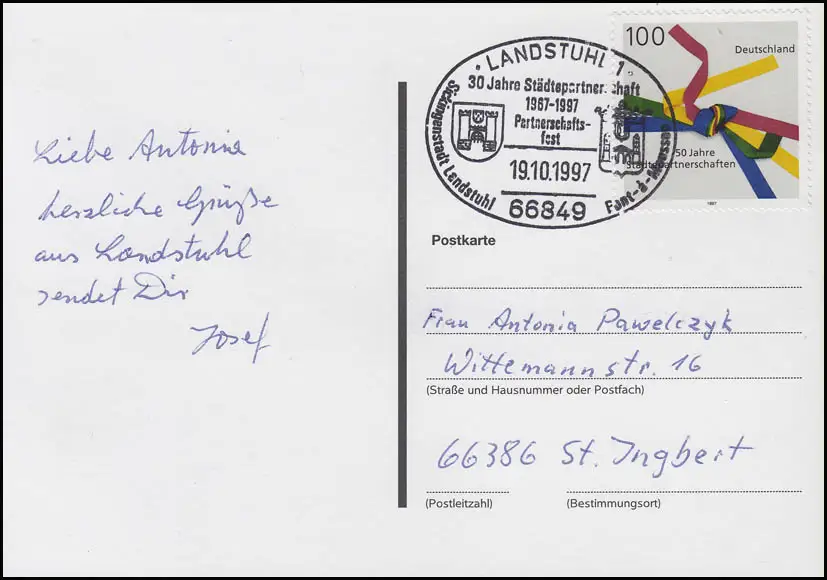 Liebe Antonia
herzliche Grüße
aus Landstuhl
sendet Dir
Josef
· LANDSTUHL 1 ·
30 Jahre Städtepartnerschaft
1967-1997
Partnerschafts-
fest
19.10.1997
66849
Sickingenstadt Landstuhl
Font-à-Mousson
100
Deutschland
50 Jahre
Städtepartnerschaften
1997
Postkarte
Frau Antonia Pawelczyk
Wittemannstr. 16
(Straße und Hausnummer oder Postfach)
66386 St. Ingbert
(Postleitzahl) (Bestimmungsort)